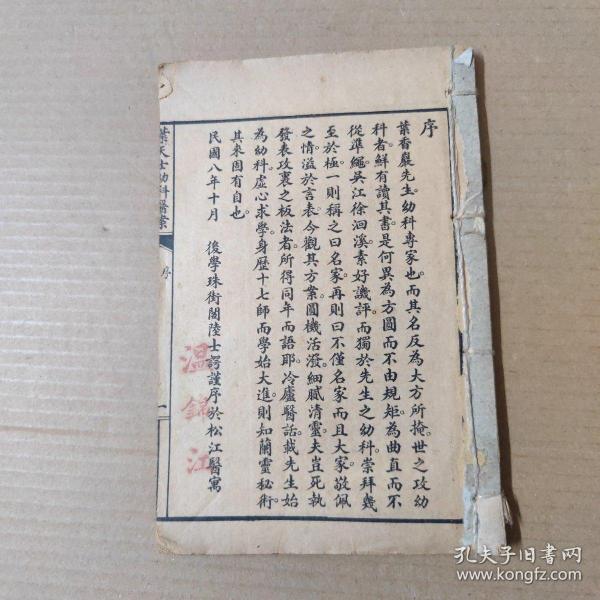 序
葉香巖先生。幼科專家也。而其名反為大方所掩。世之攻幼
科者。鮮有讀其書。是何異為方圓而不由規矩。為曲直而不
從準繩。吳江徐洄溪。素好譏評。而獨於先生之幼科。崇拜幾
至於極。一則稱之曰名家。再則曰不僅名家。而且大家。敬佩
之情。溢於言表。今觀其方案。圓機活潑。細膩清靈。夫豈死執
發表攻裏之板法者。所得同年而語耶。冷廬醫話。載先生始
為幼科。虛心求學。身歷十七師。而學始大進。則知蘭靈秘術。
其來固有自也。
民國八年十月 後學珠街閣陸士諤謹序於松江醫寓
溫錦江
葉天士幼科醫案
序
一
孔夫子旧书网
www.kongfz.com